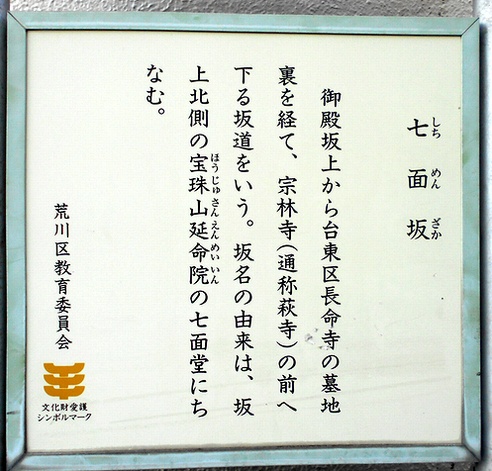 七面坂
しちめんざか
御殿坂上から台東区長命寺の墓地
裏を経て、宗林寺(通称萩寺)の前へ
下る坂道をいう。坂名の由来は、坂
上北側の宝珠山延命院の七面堂にち
ほうじゅさんえんめいいん
なむ。
荒川区教育委員会
文化財愛護
シンボルマーク